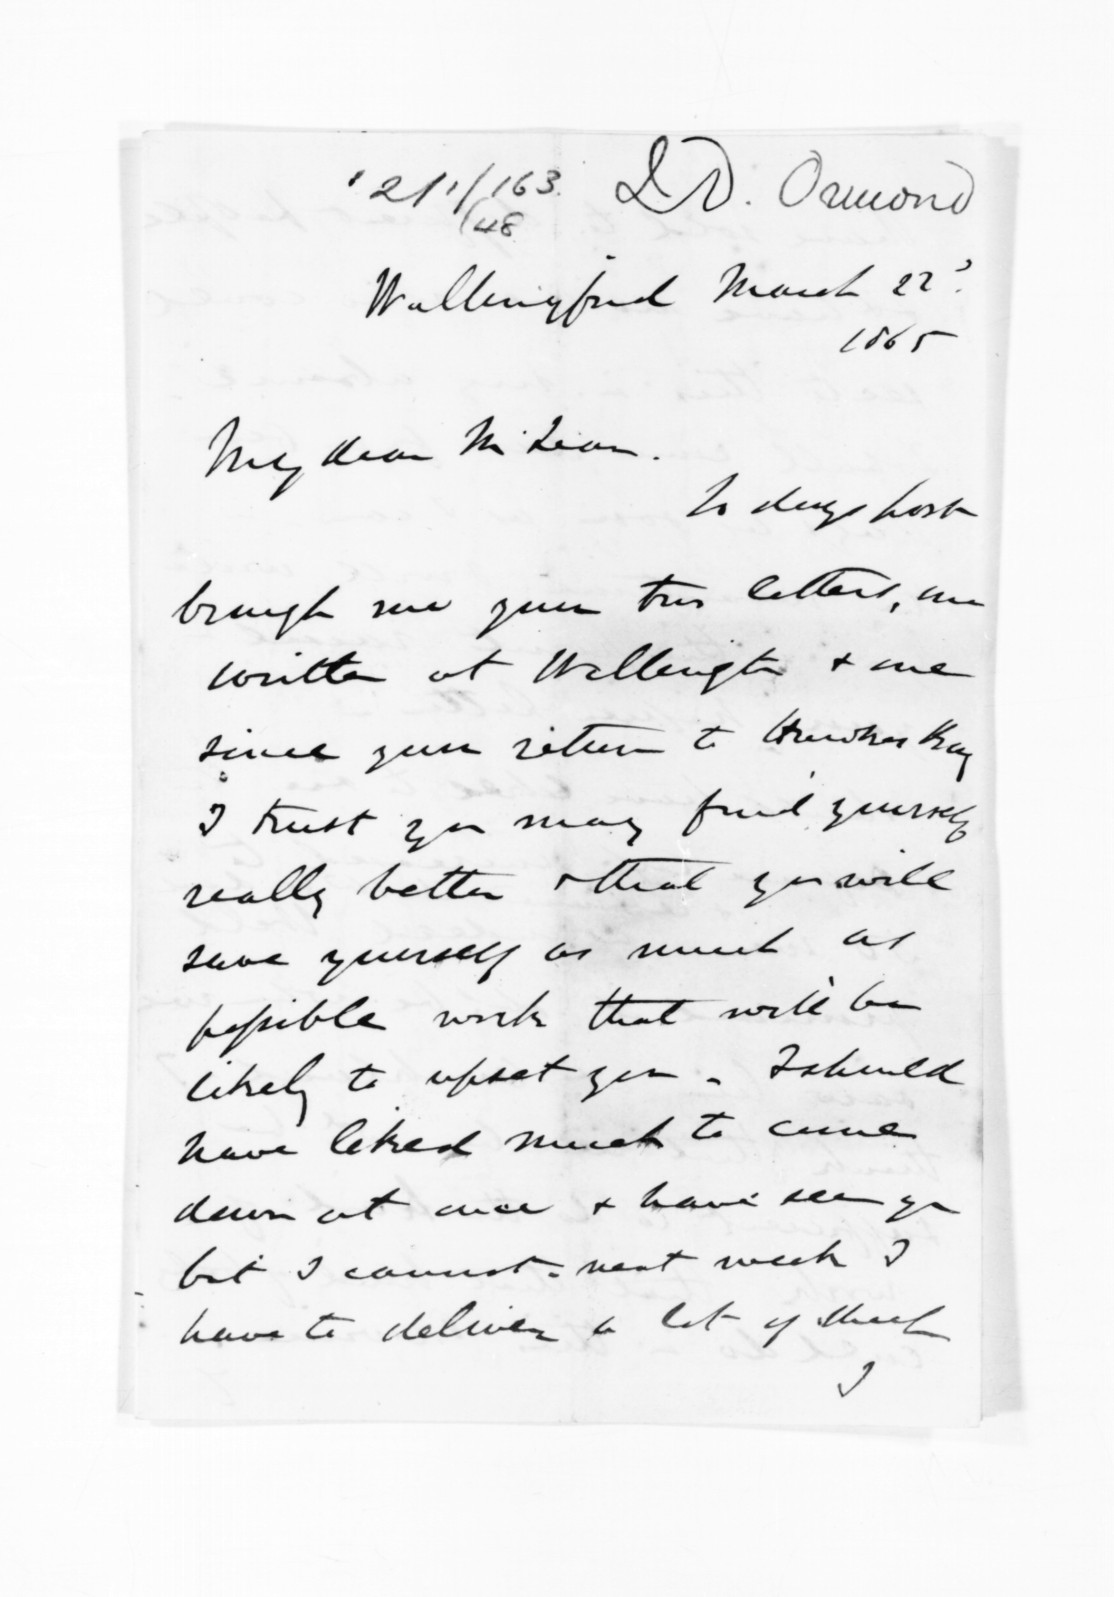 J D. Ormond
21/1/163.
/48
Wallingford March 22d.
1865
My dear McLean.
To days post
brought me your two letters, one
written at Wellington & one
since your return to Hawkes Bay
I trust you may find yourself
really better & that you will
save yourself as much as
possible work that will be
likely to upset you. I should
have liked much to come
down at once & have seen you
but I cannot. next week I
have to deliver a lot of sheep
I